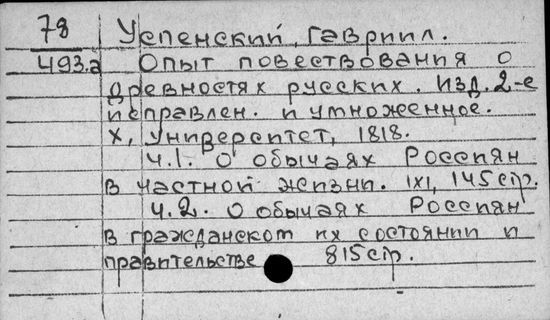 78 Успенский, Гавриил.
493.а Опыт повествования о
древностях русских. Изд. 2-е
исправлен. и умноженное.
Х, Университет, 1818.
Ч.1. О обычаях Россиян
в частной жизни. IXI, 145 стр.
Ч.2. О обычаях Россиян
в гражданском их состоянии и
правительстве 815 стр.